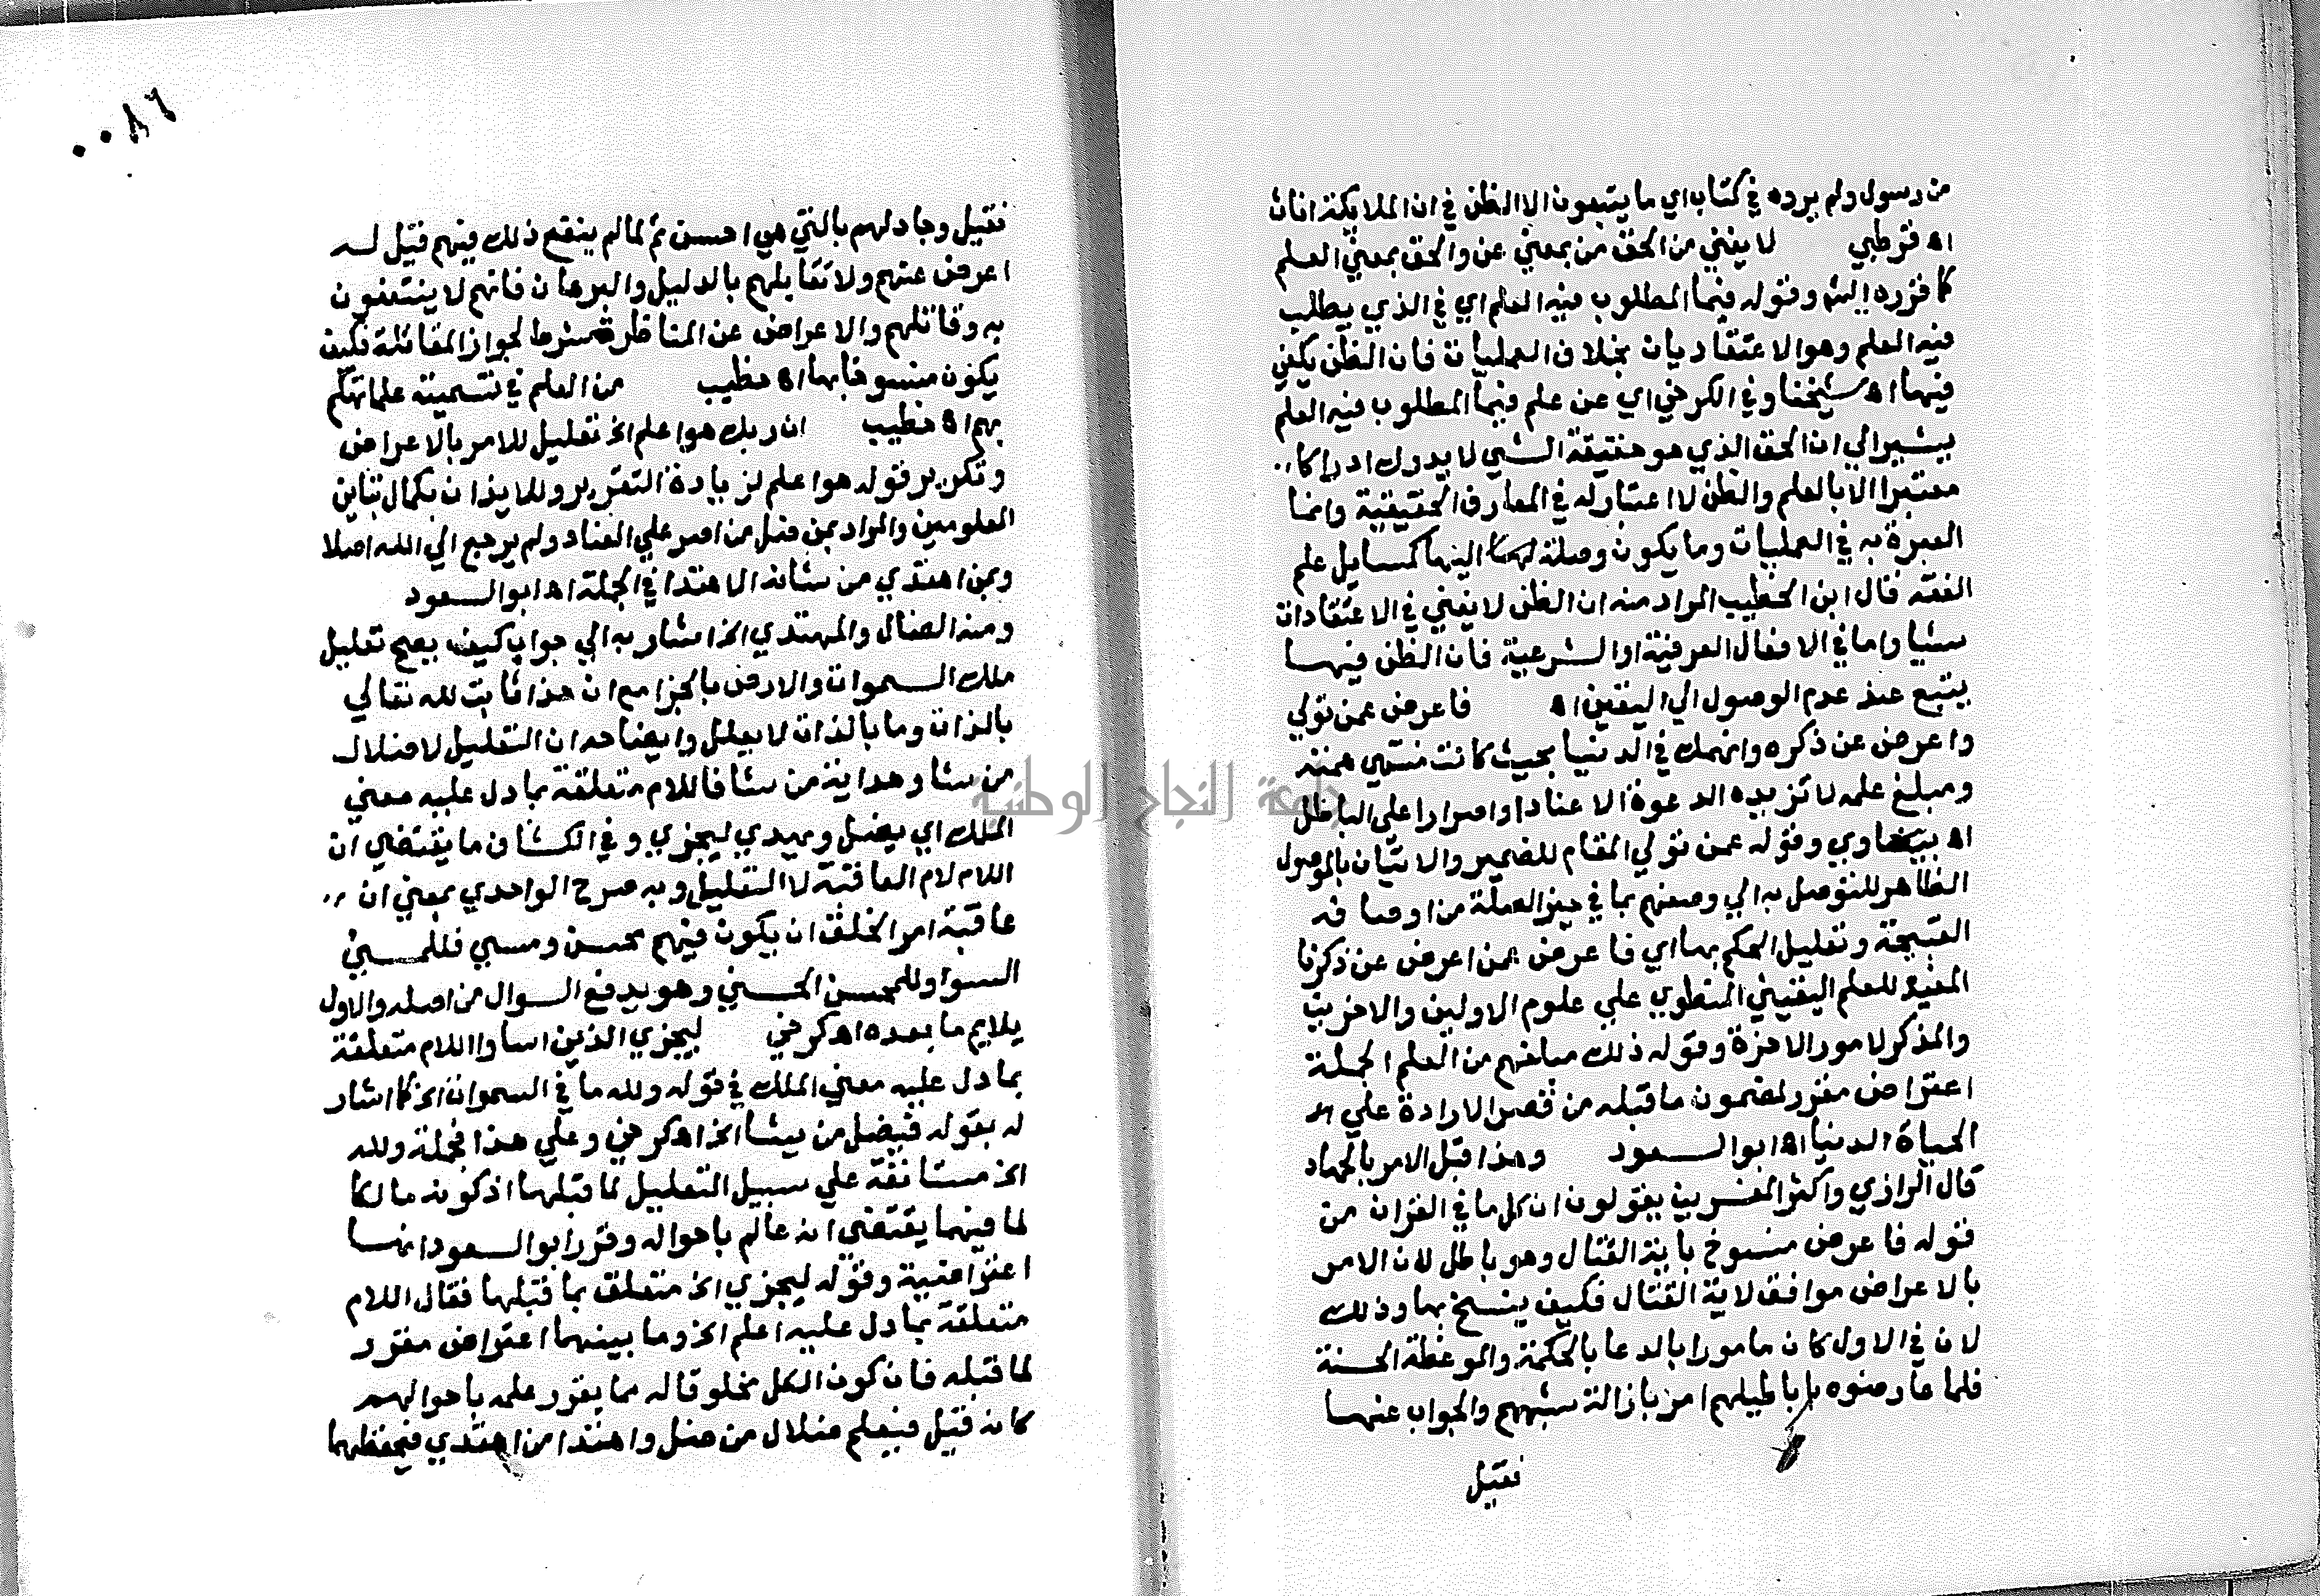 من رسول ولم يرده في كتاب اي ما يتبعون الا الظن في ان الملايكة اناث
اه قرطبي لا يغني من الحق من بمعني عن والحق بمعني العلم
كما قرره الش وقوله فيما المطلوب فيه العلم اي في الذي يطلب
فيه العلم وهو الاعتقاديات بخلاف العمليات فان الظن يكفي
فيها اه شيخنا وفي الكرخي اي عن علم فيما المطلوب فيه العلم
يشير الي ان الحق الذي هو حقيقة الشي لا يدرك ادراكا
معتبرا الا بالعلم والظن لا اعتبار له في المعارف الحقيقية وانما
العبرة به في العمليات وما يكون وصلة اليها كمسايل علم
الفقه قال ابن الخطيب المراد منه ان الظن لا يغني في الاعتقادات
شيا واما في الافعال العرفية او الشرعية فان الظن فيها
يتبع عند عدم الوصول الي اليقين اه فاعرض عمن تولي
واعرض عن ذكره وانهمك في الدنيا بحيث كانت منتهي همته
ومبلغ علمه لا تزيده الدعوة الا عنادا واصرارا علي الباطل
اه بيضاوي وقوله عمن تولي المقام للضمير والاتيان بالموصول
الظاهر للتوصل به الي وصفهم بما في حيز الصلة من اوصافه
القبيحة وتعليل الحكم بها اي فاعرض عمن اعرض عن ذكرنا
المفيد للعلم اليقيني المنطوي علي علوم الاولين والاخرين
والمذكر لامور الاخرة وقوله ذلك مبلغهم من العلم الجملة
اعتراض مقرر لمضمون ما قبله من قصر الارادة علي
الحياة الدنيا اه ابو السعود وهذا قبل الامر بالجهاد
قال الرازي واكثر المفسرين يقولون ان كل ما في القران من
قوله فاعرض منسوخ باية القتال وهو باطل لان الامر
بالاعراض موافق لاية القتال فكيف ينسخ بها وذلك
لان في الاول كان مامورا بالدعا بالحكمة والموعظة الحسنة
فلما عارضوه باباطيلهم امر بازالة شبههم والجواب عنها
فقيل
٨٦
فقيل وجادلهم بالتي هي احسن ثم لما لم ينفع ذلك فيهم قيل له
اعرض عنهم ولا تقابلهم بالدليل والبرهان فانهم لا ينتفعون
به وقاتلهم والاعراض عن المناظرة شرط لجواز المقاتلة فكيف
يكون منسوخا بها اه خطيب من العلم في تسمية علماتهكم
بهم اه خطيب ان ربك هو اعلم الخ تعليل للامر بالاعراض
وتكرير قوله هو اعلم لزيادة التقرير وللايذان بكمال تباين
المعلومين والمراد بمن ضل من اصر علي العناد ولم يرجع الي الله اصلا
وبمن اهتدي من شانه الاهتدا في الجملة اه ابو السعود
ومنه الضال والمهتدي الخ اشار به الي جواب كيف يصح تعليل
ملك السموات والارض بالجزا مع ان هذا ثابت لله تعالي
بالذات وما بالذات لا يعلل وايضاحه ان التعليل لاضلال
من شا وهداية من شا فاللام متعلقة بما دل عليه معني
الملك اي يضل ويهدي ليجزي وفي الكشاف ما يقتضي ان
اللام لام العاقبة لا التعليل وبه صرح الواحدي بمعني ان
عاقبة امر الخلق ان يكون فيهم محسن ومسي فللمسي
السوا وللمحسن الحسني وهو يدفع السوال من اصله والاول
يلايم ما بعده اه كرخي ليجزي الذين اساوا اللام متعلقة
بما دل عليه معني الملك في قوله ولله ما في السموات الخ كما اشار
له بقوله فيضل من يشا الخ اه كرخي وعلي هذا فجملة ولله
الخ مستانفة علي سبيل التعليل لما قبلها اذ كونه مالكا
لما فيهما يقتضي انه عالم باحواله وقرر ابو السعود انها
اعتراضية وقوله ليجزي الخ متعلق بما قبلها فقال اللام
متعلقة بما دل عليه اعلم الخ وما بينهما اعتراض مقرر
لما قبله فان كون الكل مخلوقا له مما يقرر علمه باحوالهم
كانه قيل فيعلم ضلال من ضل واهتدا من اهتدي فيحفظهما
جامعة النجاح الوطنية